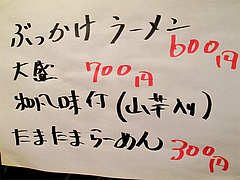 ぶっかけラーメン
600円
大盛 700円
和風味付(山芋入り)
たまたまらーめん 300円